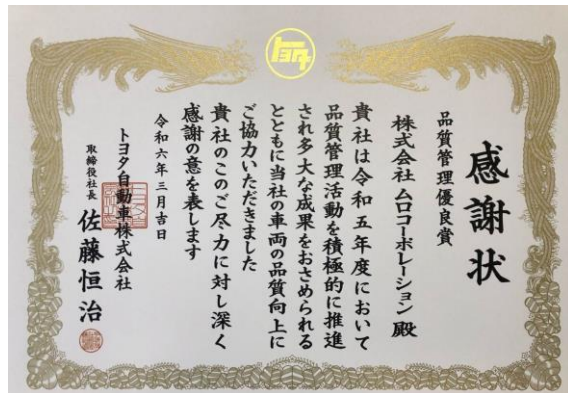 トヨタ
感謝状
品質管理優良賞
株式会社 ムロコーポレーション 殿
貴社は令和五年度において
品質管理活動を積極的に推進
され多大な成果をおさめられる
とともに当社の車両の品質向上に
ご協力いただきました
貴社のこのご尽力に対し深く
感謝の意を表します
令和六年三月吉日
トヨタ自動車株式会社
取締役社長 佐藤恒治